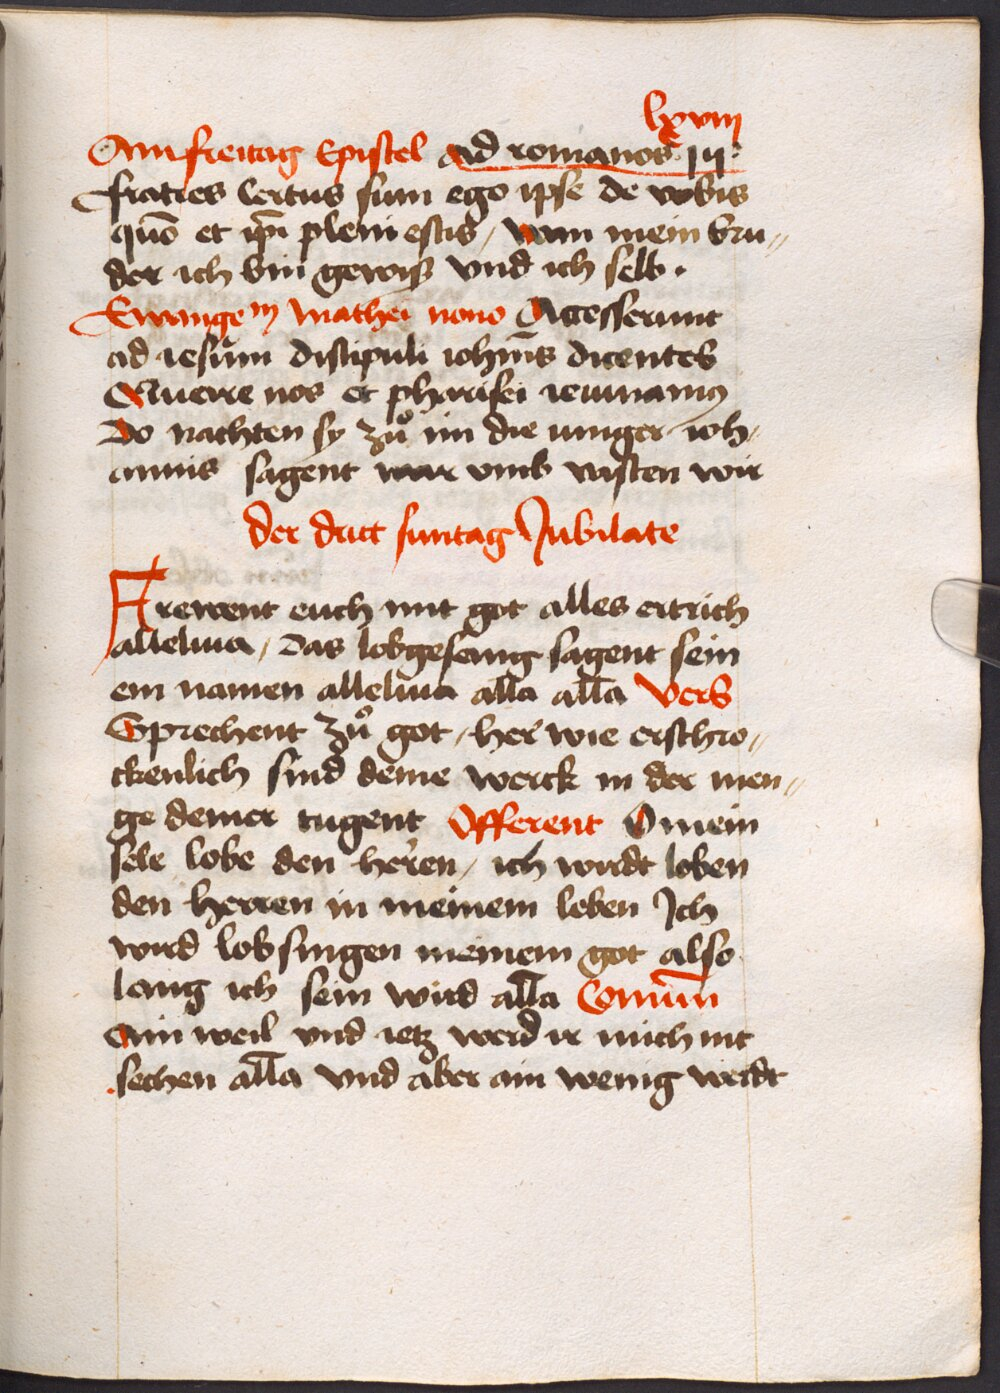 lxviij
Am freitag Epistel ad romanos iij
fratres Certus sum ego ipse de vobis
quō et ip̄i pleni estis / wan mein bru„
der ich bin gewiss vnd ich selb ·
Ewangem mathei nono Accesserunt
ad iesum discipuli iohīns dicentes
Quare nos et pharisei ieiunamus
Do nachten sy zuͦ im die iunger ioh„
annis sagent war vmb vasten wir
der drit suntag Jubilate
Frewent euch mit got alles ertrich
alleluia / Das lobgesang sagent sein
em namen alleluia alla all̄a vers
Sprechent zuͦ got / her wie erschro„
ckenlich sind deine werck in der men„
ge deiner tugent Offerent O mein
sele lobe den heren / ich wirdt loben
den herren in meinem leben Ich
wird lobsingen meinem got also
lang ich sein wird all̄a Comūn
Ain weil vnd ietz werd ir mich nit
sechen all̄a vnd aber ain wenig werdt